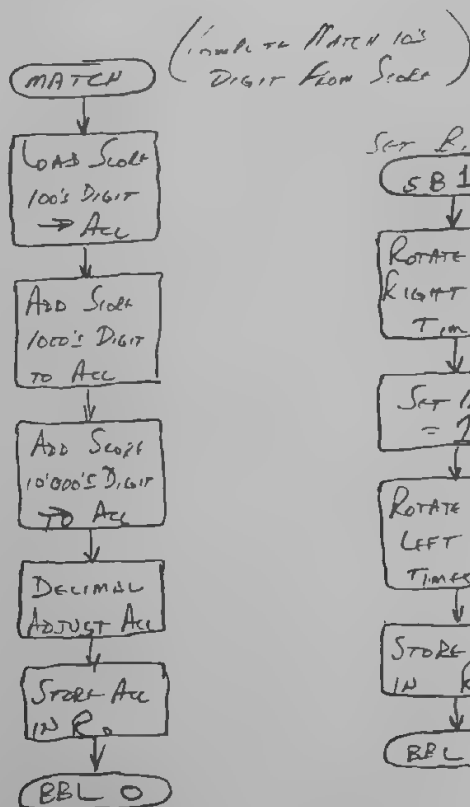 MATCH
(COMPUTE MATCH 10's
DIGIT FROM SCORE)
LOAD SCORE
100's DIGIT
→ ACC
ADD SCORE
1000's DIGIT
TO ACC
ADD SCORE
10'000's DIGIT
TO ACC
DECIMAL
ADJUST ACC
STORE ACC
IN R0
BBL 0
SET
SB1
ROTATE
RIGHT
TIM
SET
= 1
ROTATE
LEFT
TIMES
STORE
IN R
BBL